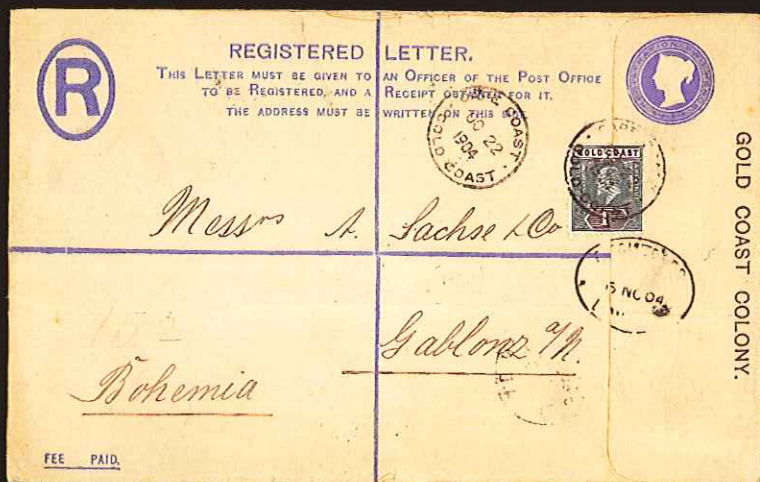 R
REGISTERED LETTER.
THIS LETTER MUST BE GIVEN TO AN OFFICER OF THE POST OFFICE
TO BE REGISTERED, AND A RECEIPT OBTAINED FOR IT.
THE ADDRESS MUST BE WRITTEN ON THIS
COAST
OC 22
1904
GOLD COAST
GOLD COAST
GOLD COAST COLONY.
Messrs A. Sachse & Co
5 NO 04
Gablonz a/N.
Bohemia
FEE PAID.